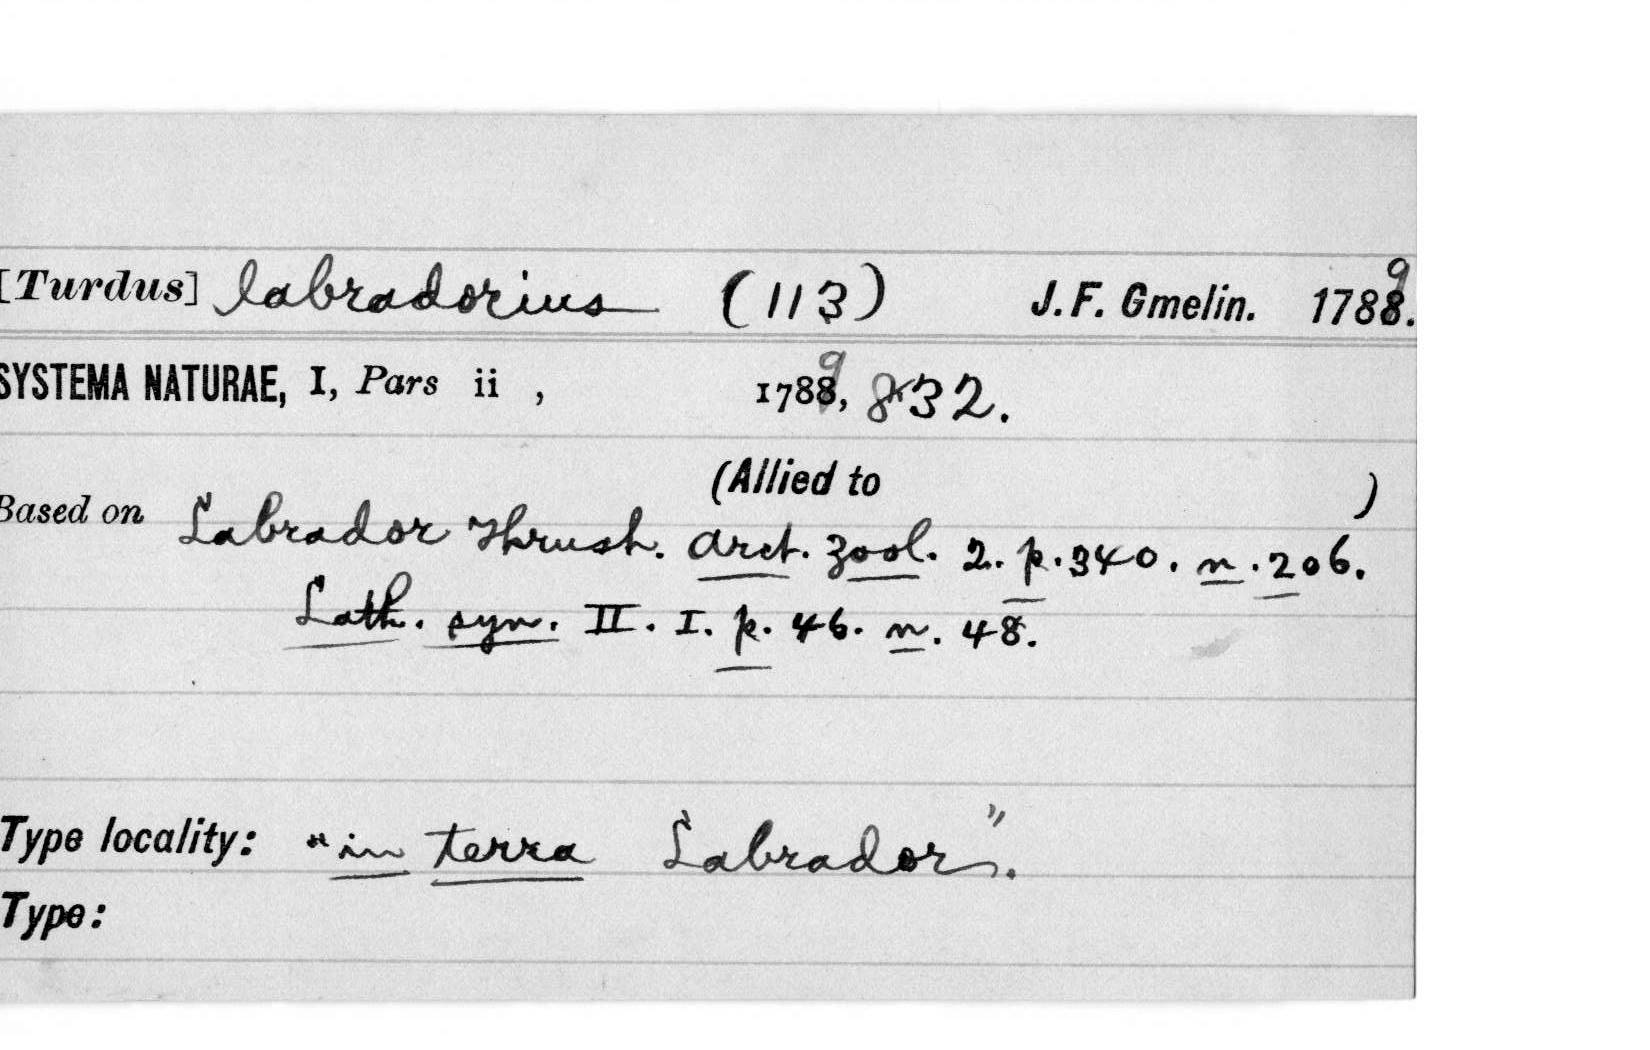 [Turdus] labradorius (113) J. F. Gmelin. 1789.
SYSTEMA NATURAE, I, Pars ii , 1789, 832.
(Allied to )
Based on Labrador Thrush. Arct. Zool. 2. p. 340. n. 206.
Lath. syn. II. I. p. 46. n. 48.
Type locality: "in terra Labrador".
Type: